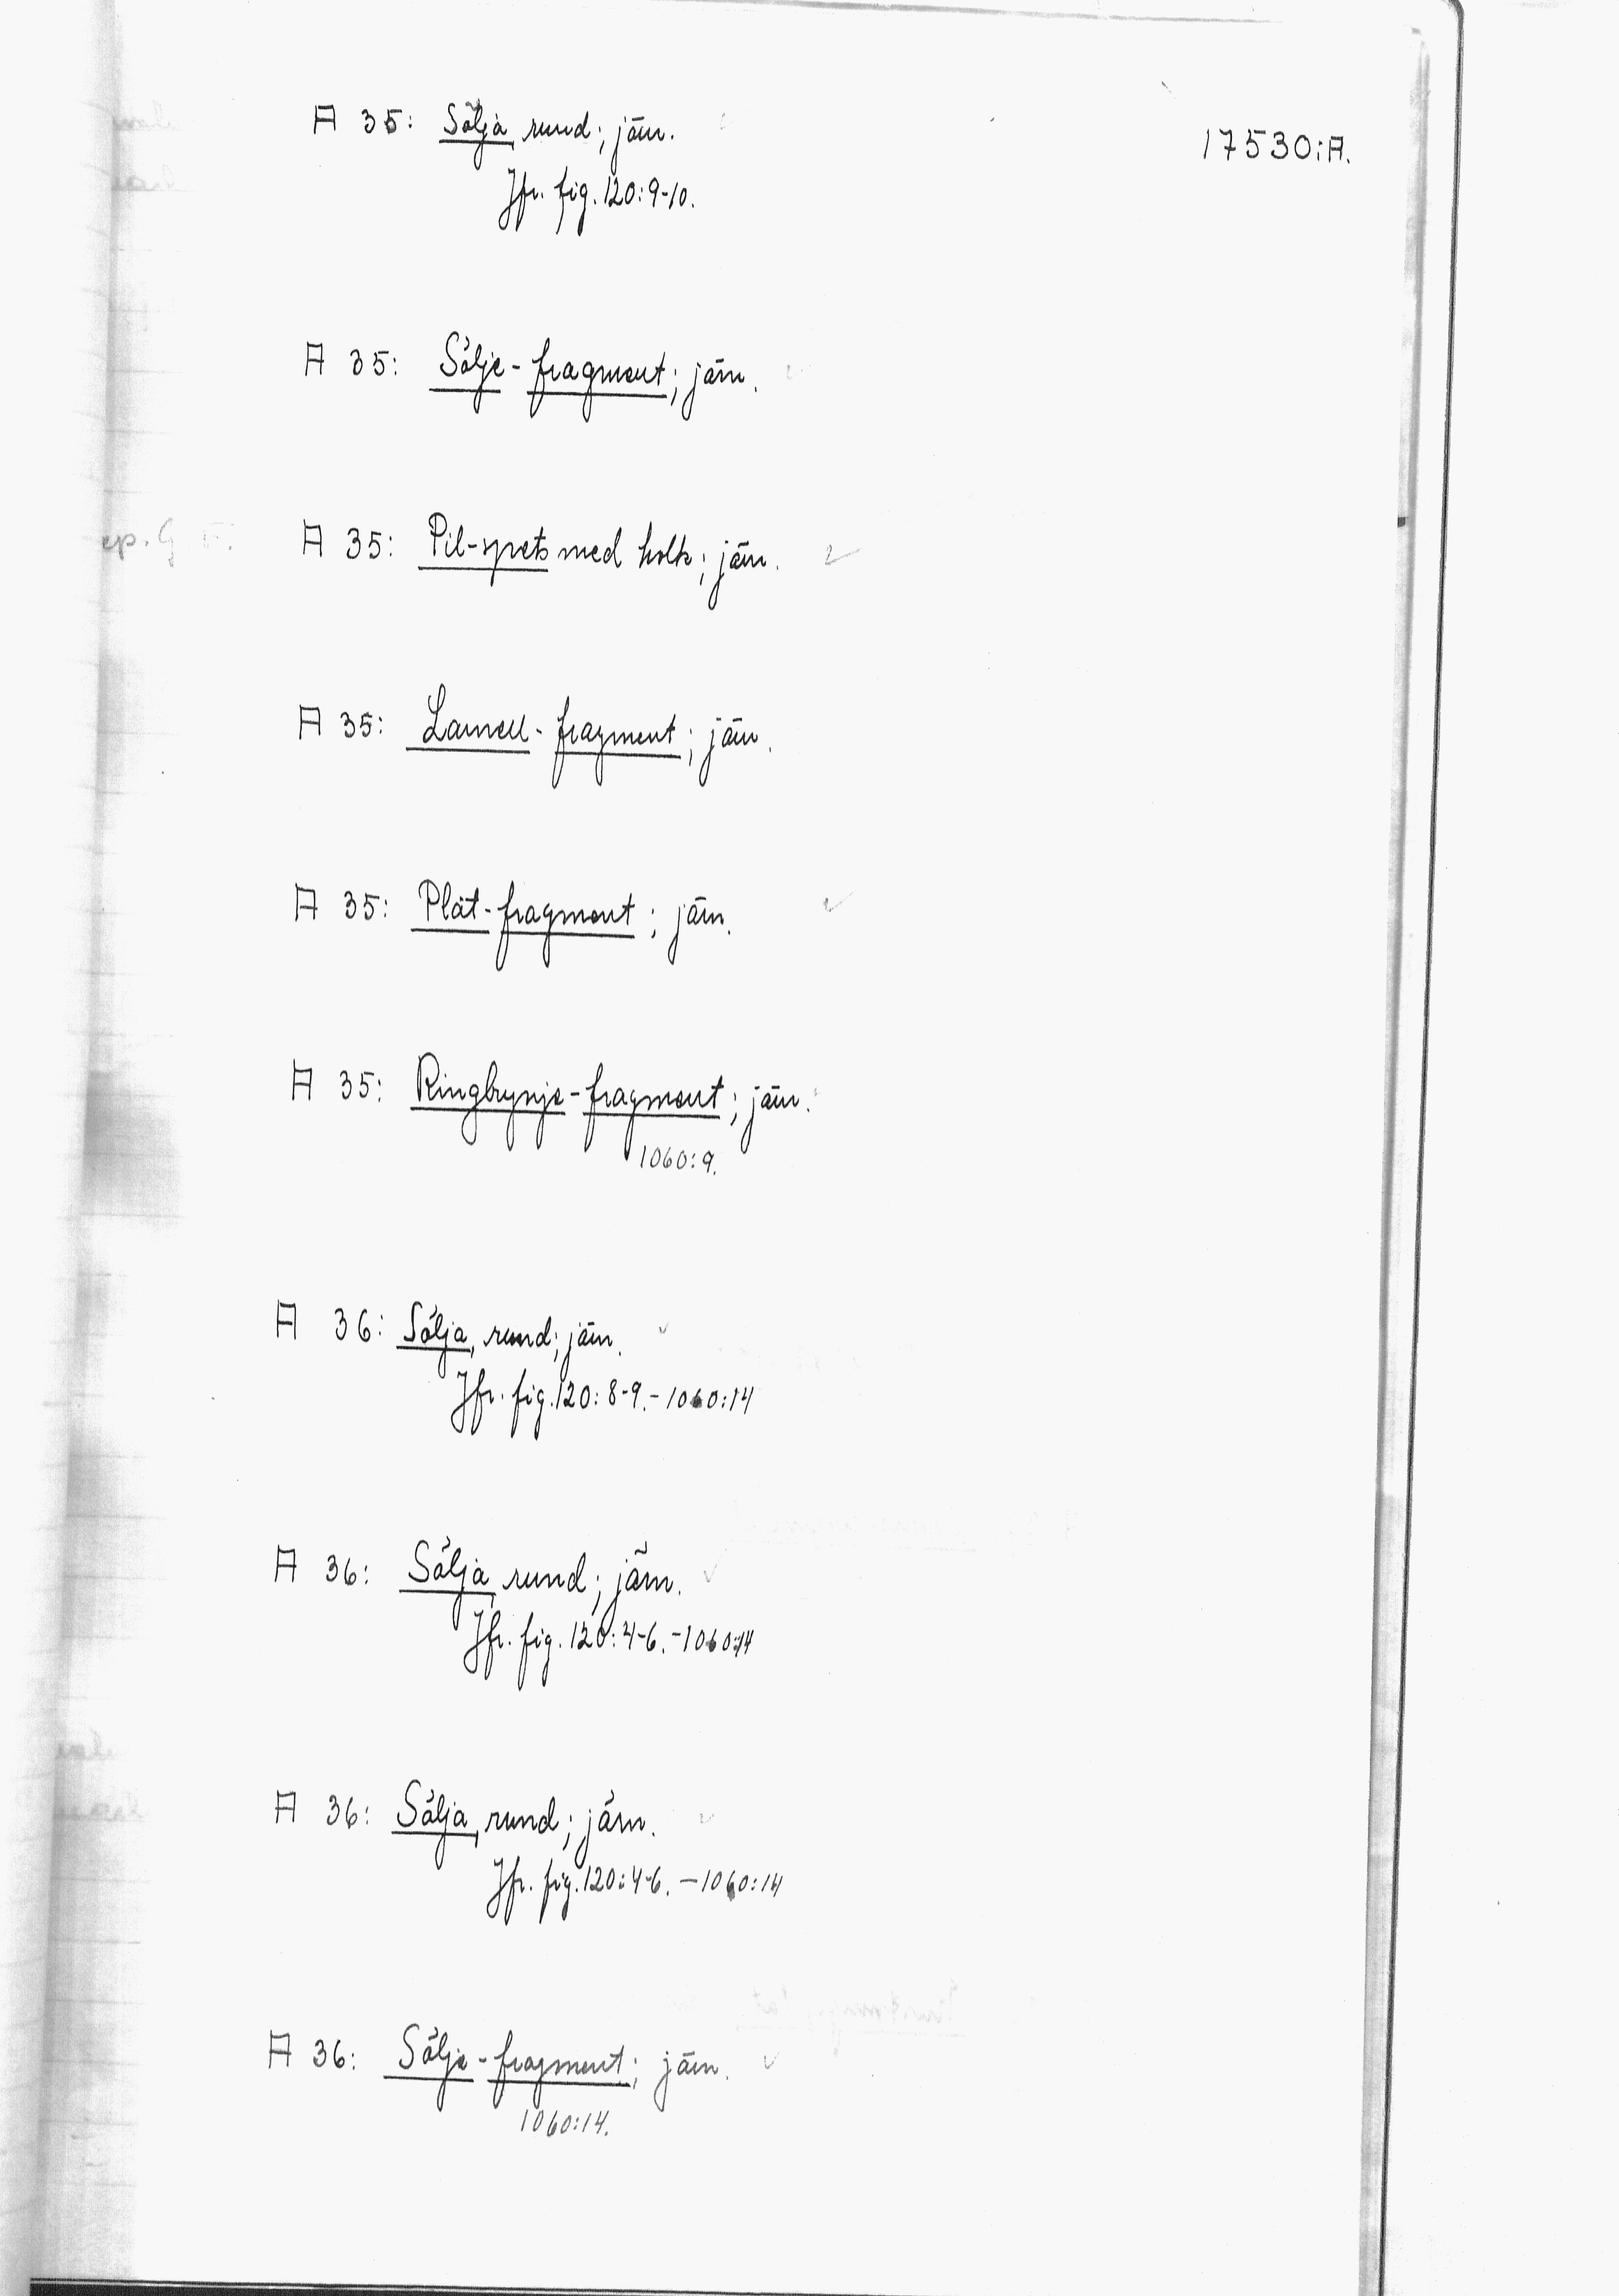 17530:A.
A 35: Sölja, rund; järn.
Jfr. fig. 120:9-10.
A 35: Sölje-fragment; järn.
A 35: Pil-spets med holk; järn.
A 35: Lamell-fragment; järn.
A 35: Plåt-fragment; järn.
A 35: Ringbrynje-fragment; järn.
1060:9.
A 36: Sölja, rund; järn.
Jfr. fig. 120:8-9. - 1060:14
A 36: Sölja, rund; järn.
Jfr. fig. 120:4-6. - 1060:14
A 36: Sölja, rund; järn.
Jfr. fig. 120:4-6. - 1060:14
A 36: Sölje-fragment; järn.
1060:14.